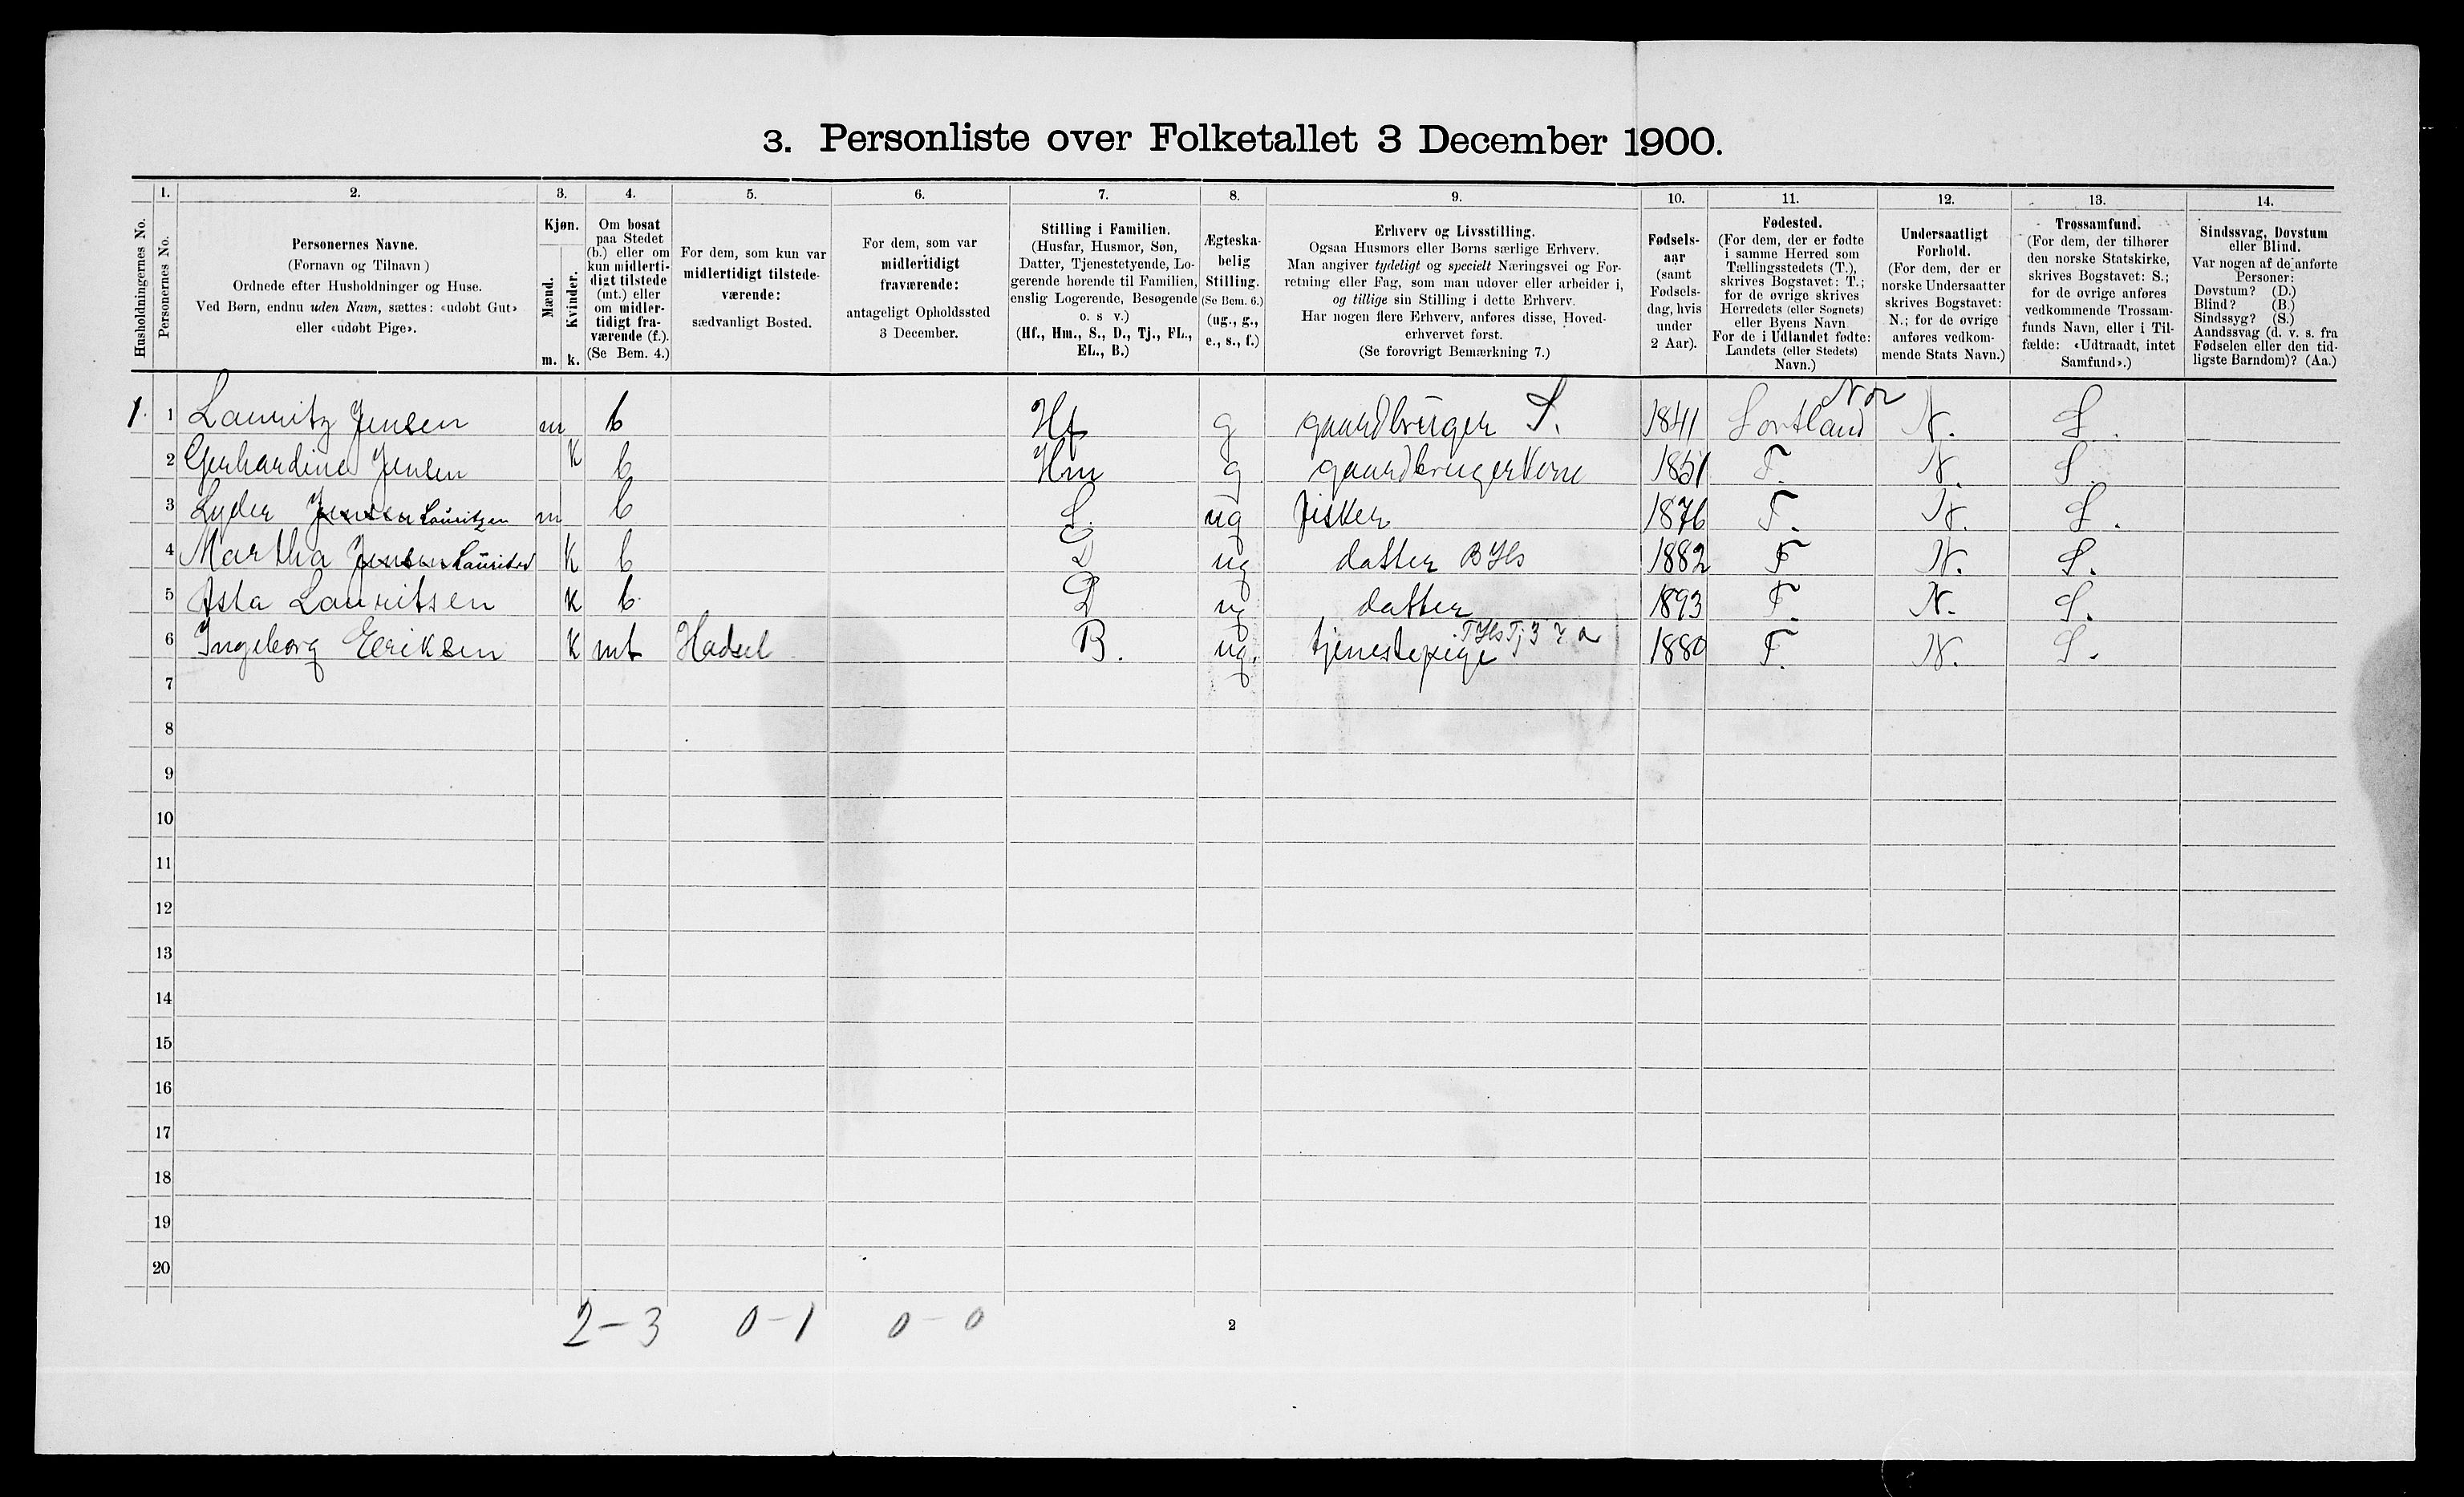 3. Personliste over Folketallet 3 December 1900.
1. 2. 3. 4. 5. 6. 7. 8. 9. 10. 11. 12. 13. 14.
Husholdningernes No.
Personernes No.
Personernes Navne.
(Fornavn og Tilnavn)
Ordnede efter Husholdninger og Huse.
Ved Børn, endnu uden Navn, sættes: «udøbt Gut»
eller «udøbt Pige».
Kjøn.
Mænd.
m.
Kvinder.
k.
Om bosat
paa Stedet
(b.) eller om
kun midlerti-
digt tilstede
(mt.) eller
om midler-
tidigt fra-
værende (f.).
(Se Bem. 4.)
For dem, som kun var
midlertidigt tilstede-
værende:
sædvanligt Bosted.
For dem, som var
midlertidigt
fraværende:
antageligt Opholdssted
3 December.
Stilling i Familien.
(Husfar, Husmor, Søn,
Datter, Tjenestetyende, Lo-
gerende hørende til Familien,
enslig Logerende, Besøgende
o. s v.)
(Hf., Hm., S., D., Tj., FL.,
EL., B.)
Ægteska-
belig
Stilling.
(Se Bem. 6.)
(ug., g.,
e., s., f.)
Erhverv og Livsstilling.
Ogsaa Husmors eller Børns særlige Erhverv.
Man angiver tydeligt og specielt Næringsvei og For-
retning eller Fag, som man udøver eller arbeider i,
og tillige sin Stilling i dette Erhverv.
Har nogen flere Erhverv, anføres disse, Hoved-
erhvervet først.
(Se forøvrigt Bemærkning 7.)
Fødsels-
aar
(samt
Fødsels-
dag, hvis
under
2 Aar).
Fødested.
(For dem, der er fødte
i samme Herred som
Tællingsstedets (T.),
skrives Bogstavet: T.;
for de øvrige skrives
Herredets (eller Sognets)
eller Byens Navn.
For de i Udlandet fødte:
Landets (eller Stedets)
Navn.)
Undersaatligt
Forhold.
(For dem, der er
norske Undersaatter
skrives Bogstavet:
N.; for de øvrige
anføres vedkom-
mende Stats Navn.)
Trossamfund.
(For dem, der tilhører
den norske Statskirke,
skrives Bogstavet: S.;
for de øvrige anføres
vedkommende Trossam-
funds Navn, eller i Til-
fælde: «Udtraadt, intet
Samfund».)
Sindssvag, Døvstum
eller Blind.
Var nogen af de anførte
Personer:
Døvstum? (D.)
Blind? (B.)
Sindssyg? (S.)
Aandssvag (d. v. s. fra
Fødselen eller den tid-
ligste Barndom)? (Aa.)
1. 1 Lauritz Jensen m b Hf g gaardbruger S. 1841 Sortland Nor N. S.
2 Gerhardine Jensen K b Hm g gaardbrugerkone 1851 T. N. S.
3 Lyder Jensen Lauritzen m b S. ug fisker 1876 T. N. S.
4 Martha Jensen Lauritsen K b D ug datter B Hs 1882 T N. S.
5 Asta Lauritsen K b D ug datter 1893 T. N. S.
6 Ingeborg Eeriksen K mt Hadsel B. ug. tjenestepige T Hs Tj 1880 T. N. S.
7
8
9
10
11
12
13
14
15
16
17
18
19
20
2-3 0-1 0-0
2